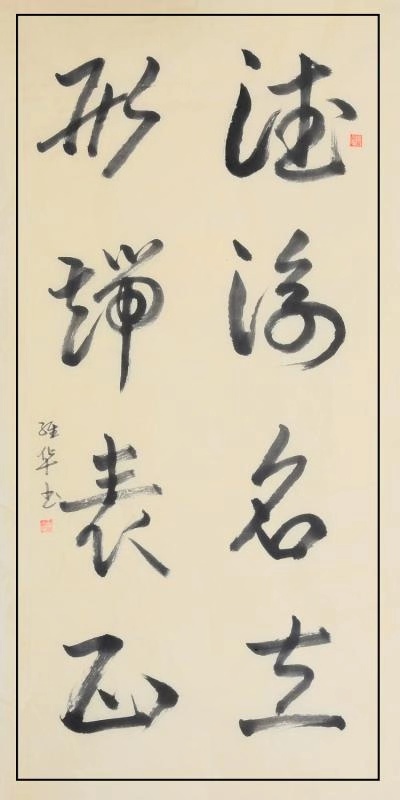 德建名立
形端表正
维华书